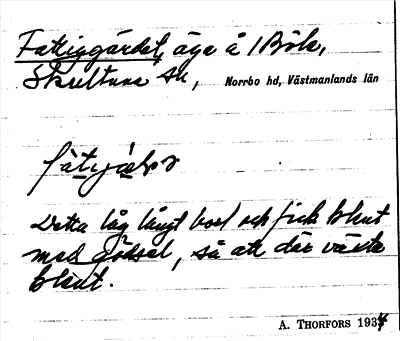 Fattiggärdet, äga å /Böle,
Skultuna sn, Norrbo hd, Västmanlands län
Detta låg långt bort och fick blott
med gödsel, så att där växte
blott.
A. THORFORS 1934